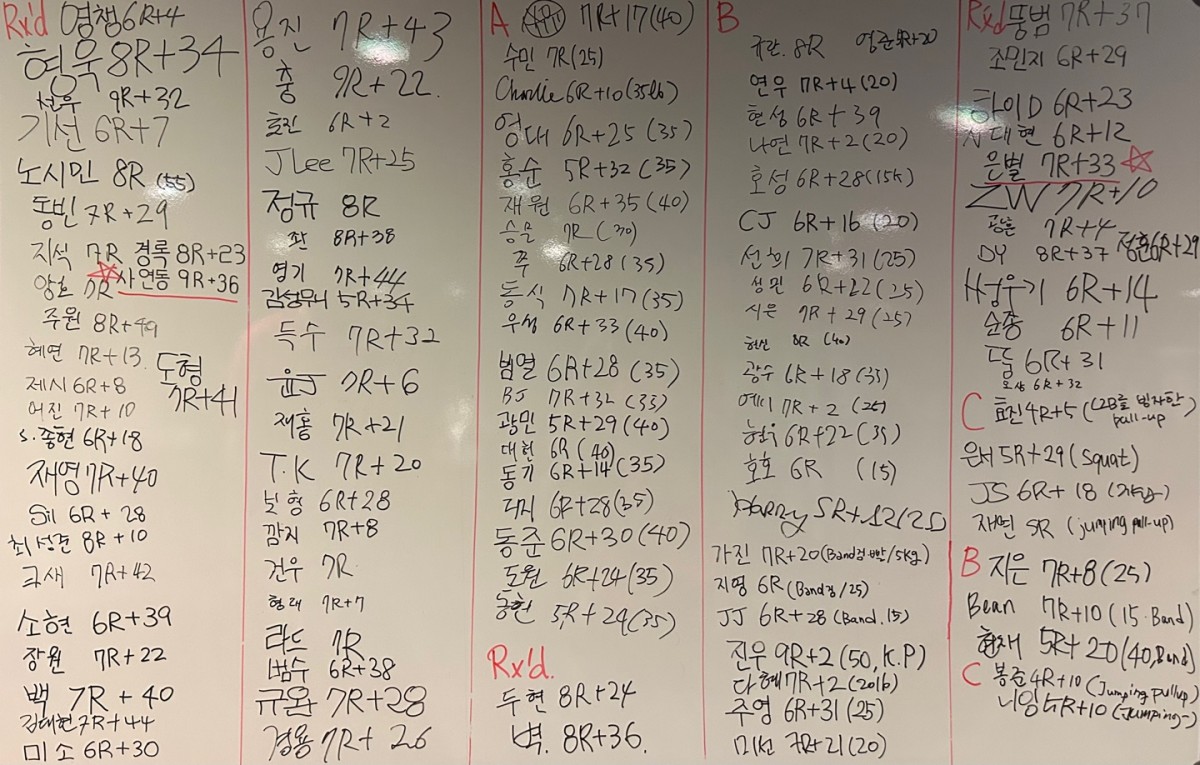 Rx'd 영챙 6R+4
형욱 8R+34
선우 9R+32
기선 6R+7
노시민 8R (55)
동빈 7R+29
지식 7R
경록 8R+23
양호 7R
사연동 9R+36
주원 8R+49
혜연 7R+13
도형 7R+41
제시 6R+8
어진 7R+10
s.중현 6R+18
재영 7R+40
Sil 6R+28
최성견 8R+10
국새 7R+42
소현 6R+39
장원 7R+22
백 7R+40
김대현 7R+44
미소 6R+30
용진 7R+43
충 9R+22.
효진 6R+2
JLee 7R+25
정규 8R
8R+38
영기 7R+44
5R+34
득수 7R+32
윤J 7R+6
재홍 7R+21
T.K 7R+20
보형 6R+28
깜지 7R+8
건우 7R
형래 7R+7
라드 7R
범수 6R+38
규완 7R+28
경용 7R+26
A 7R+17(40)
수민 7R(25)
Charlie 6R+10(35lb)
영내 6R+25(35)
홍순 5R+32(35)
재원 6R+35(40)
승문 7R(30)
쭈 6R+28(35)
동식 7R+17(35)
우성 6R+33(40)
범열 6R+28(35)
BJ 7R+32(33)
광민 5R+29(40)
대현 6R(40)
동기 6R+14(35)
6R+28(35)
동준 6R+30(40)
도원 6R+24(35)
동현 5R+24(35)
Rx'd.
두현 8R+24
벽. 8R+36.
B
규란. 8R
영준 4R+20
연우 7R+4(20)
현성 6R+39
나연 7R+2(20)
호성 6R+28(15k)
CJ 6R+16(20)
선희 7R+31(25)
성민 6R+22(25)
시은 7R+29(25)
현신 8R(40)
광수 6R+18(35)
예디 7R+2(25)
현우 6R+22(35)
호호 6R(15)
Harry 5R+12(25)
가진 7R+20(Band검빨/5kg)
지영 6R(Band검/25)
JJ 6R+28(Band.15)
진우 9R+2(50,K.P)
다혜 7R+2(20lb)
주영 6R+31(25)
미선 7R+21(20)
Rx'd 뚱범 7R+37
조민지 6R+29
하이D 6R+23
서대현 6R+12
은별 7R+33
ZW 7R+10
광훈 7R+4
DY 8R+37
정훈 6R+29
H성우기 6R+14
순종 6R+11
도돌 6R+31
6R+32
C 효진 4R+5(pull-up)
은서 5R+29(Squat)
JS 6R+18
재연 5R (jumping pull-up)
B 지은 7R+8(25)
Bean 7R+10(15.Band)
현재 5R+20(40,Band)
C 봉준 4R+10(Jumping pullup)
니잉 5R+10(Jumping~)